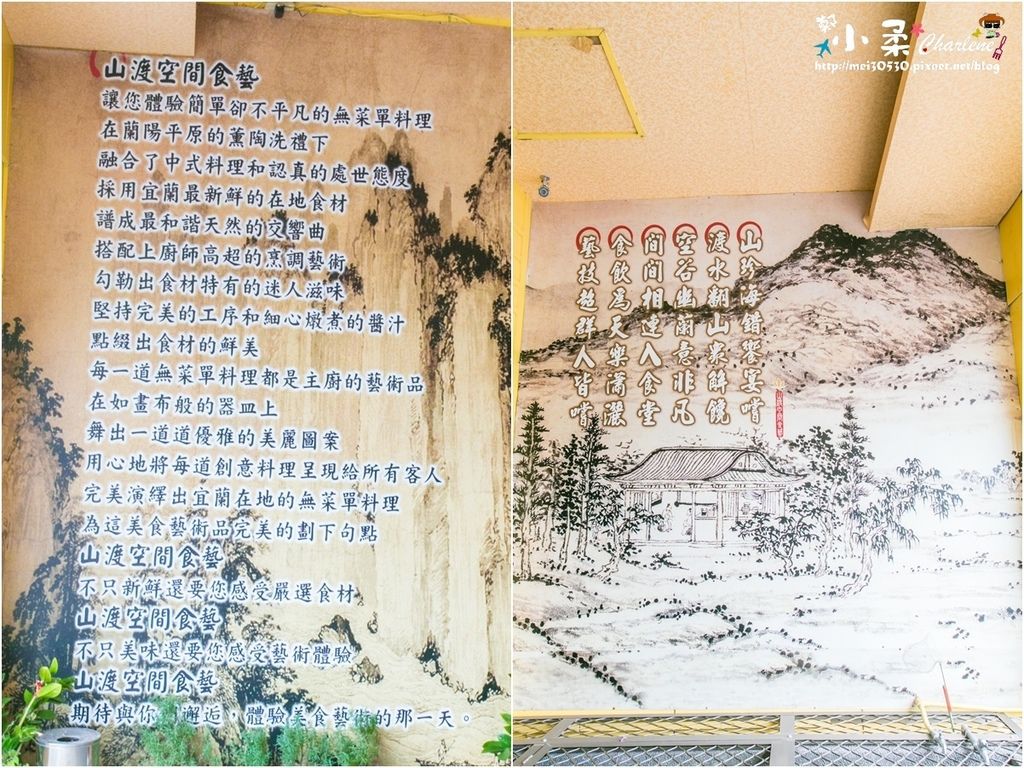 山渡空間食藝
讓您體驗簡單卻不平凡的無菜單料理
在蘭陽平原的薰陶洗禮下
融合了中式料理和認真的處世態度
採用宜蘭最新鮮的在地食材
譜成最和諧天然的交響曲
搭配上廚師高超的烹調藝術
勾勒出食材特有的迷人滋味
堅持完美的工序和細心燉煮的醬汁
點綴出食材的鮮美
每一道無菜單料理都是主廚的藝術品
在如畫布般的器皿上
舞出一道道優雅的美麗圖案
用心地將每道創意料理呈現給所有客人
完美演繹出宜蘭在地的無菜單料理
為這美食藝術品完美的劃下句點
山渡空間食藝
不只新鮮還要您感受嚴選食材
山渡空間食藝
不只美味還要您感受藝術體驗
山渡空間食藝
期待與你 邂逅，體驗美食藝術的那一天。
山珍海錯饗宴嚐
渡水翻山眾解饞
空谷幽蘭意非凡
間間相連入食堂
食飲為天樂瀟灑
藝技超群人皆嚐
小柔
Charlene
http://mei30530.pixnet.net/blog